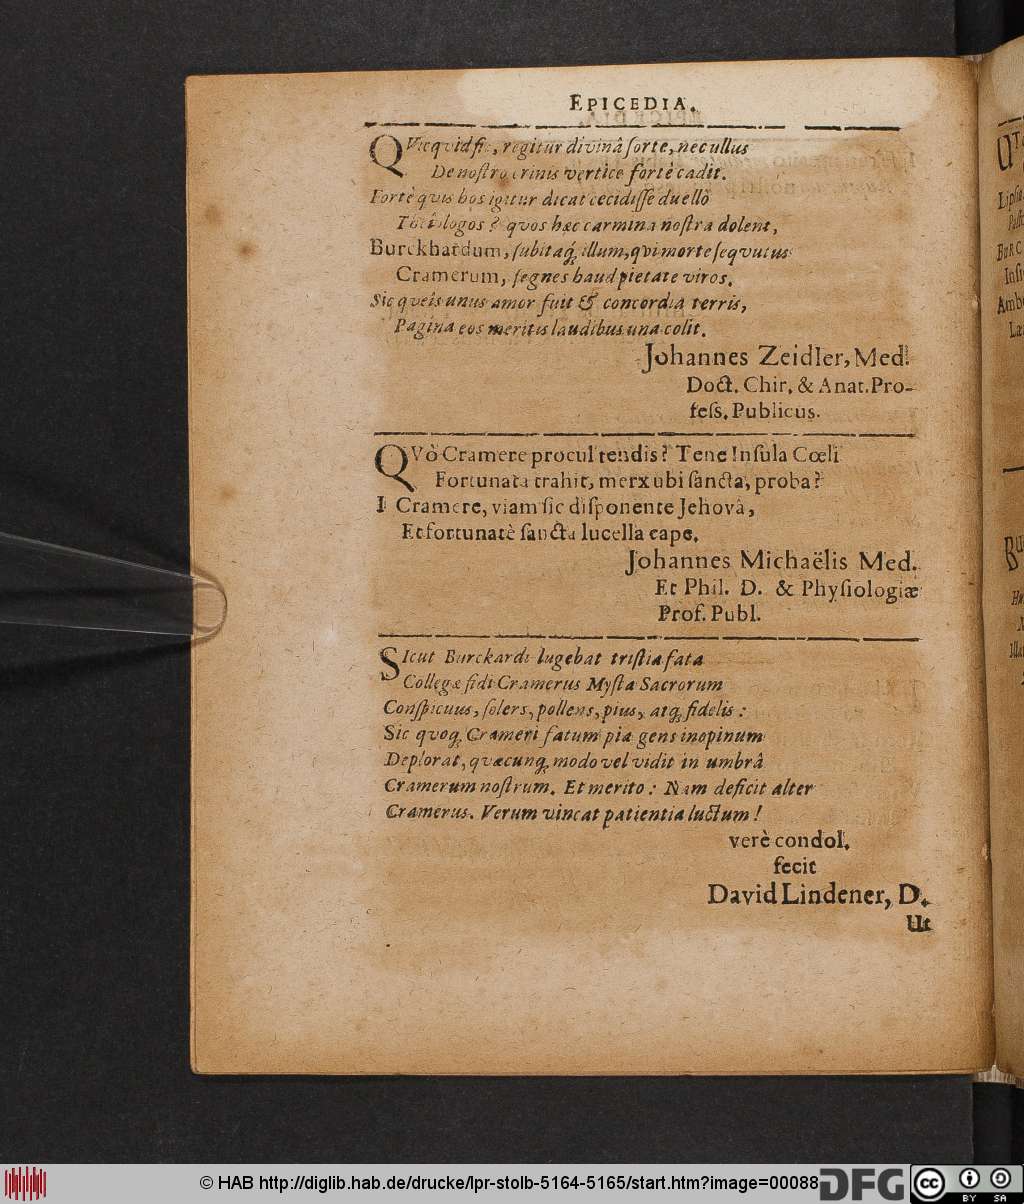 EPICEDIA.
QVicqvid fit, regitur divinâ sorte, nec ullus
De nostro crinis vertice fortè cadit.
Fortè qvis hos igitur dicat cecidisse duellô
Theologos? qvos hæc carmina nostra dolent,
Burckhardum, subitaq; illum, qvi morte seqvutus
Cramerum, segnes haud pietate viros.
Sic qveîs unus amor fuit & concordia terris,
Pagina eos meritis laudibus una colit.
Johannes Zeidler, Med.
Doct. Chir. & Anat. Pro-
fess. Publicus.
QVò Cramere procul tendis? Tene Insula Cœli
Fortunata trahit, merx ubi sancta, proba?
I Cramere, viam sic disponente Jehovâ,
Et fortunatè sancta lucella cape.
Johannes Michaëlis Med.
Et Phil. D. & Physiologiæ
Prof. Publ.
SIcut Burckardi lugebat tristia fata
Collegæ fidi Cramerus Mysta Sacrorum
Conspicuus, solers, pollens, pius, atq; fidelis:
Sic quoq; Crameri fatum pia gens inopinum
Deplorat, qvæcunq; modo vel vidit in umbrâ
Cramerum nostrum. Et merito: Nam deficit alter
Cramerus. Verum vincat patientia luctum!
verè condol.
fecit
David Lindener, D.
Ut
© HAB http://diglib.hab.de/drucke/lpr-stolb-5164-5165/start.htm?image=00088
DFG
cc BY SA